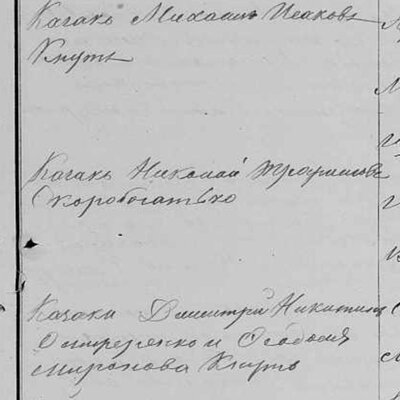 Казакъ Михаилъ Исаковъ
Кнутъ
Казакъ Николай Трофимовъ
Скоробогатько
Казаки Димитрій Никитинъ
и Ѳеодосія
Миронова Кнутъ